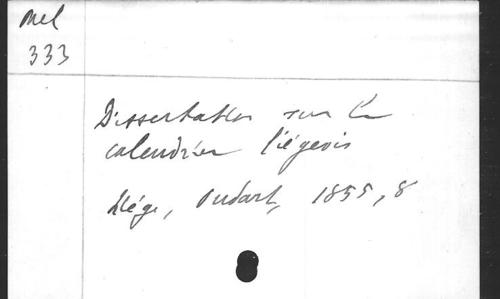 Mel
333
Dissertation sur le
calendrier liégeois
Liége, Oudart, 1855, 8